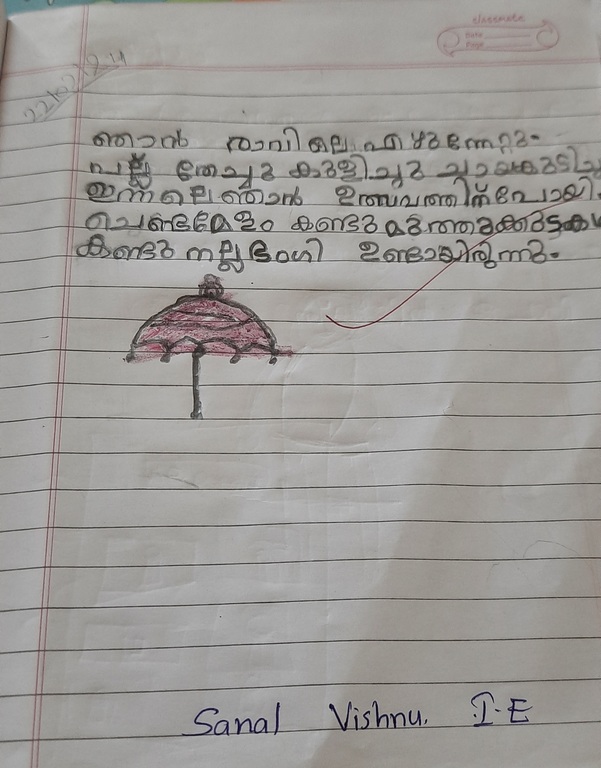 classmate
Date
Page
22/02/24
ഞാൻ രാവിലെ എഴുന്നേറ്റു.
പല്ല് തേച്ചു കുളിച്ചു ചായകുടിച
ഇന്നലെ ഞാൻ ഉത്സവത്തിന് പോയി.
ചെണ്ടമേളം കണ്ടു മുത്തുക്കുട
കണ്ടു നല്ല ഭംഗി ഉണ്ടായിരുന്നു.
Sanal Vishnu. I-E